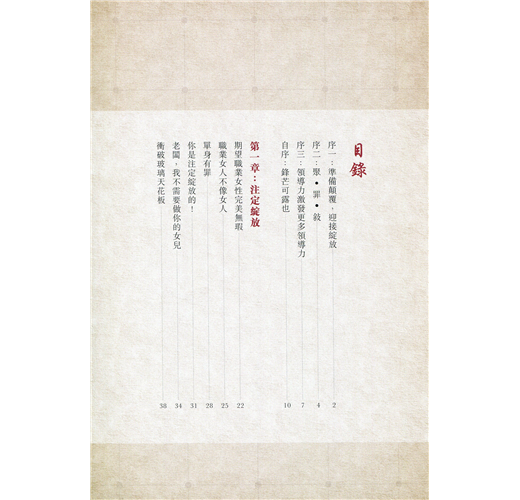 目錄
序一：準備顛覆，迎接綻放 2
序二：聚•罪•敍 4
序三：領導力激發更多領導力 7
自序：鋒芒可露也 10
第一章：注定綻放
期望職業女性完美無瑕 22
職業女人不像女人 25
單身有罪 28
你是注定綻放的！ 31
老闆，我不需要做你的女兒 34
衝破玻璃天花板 38